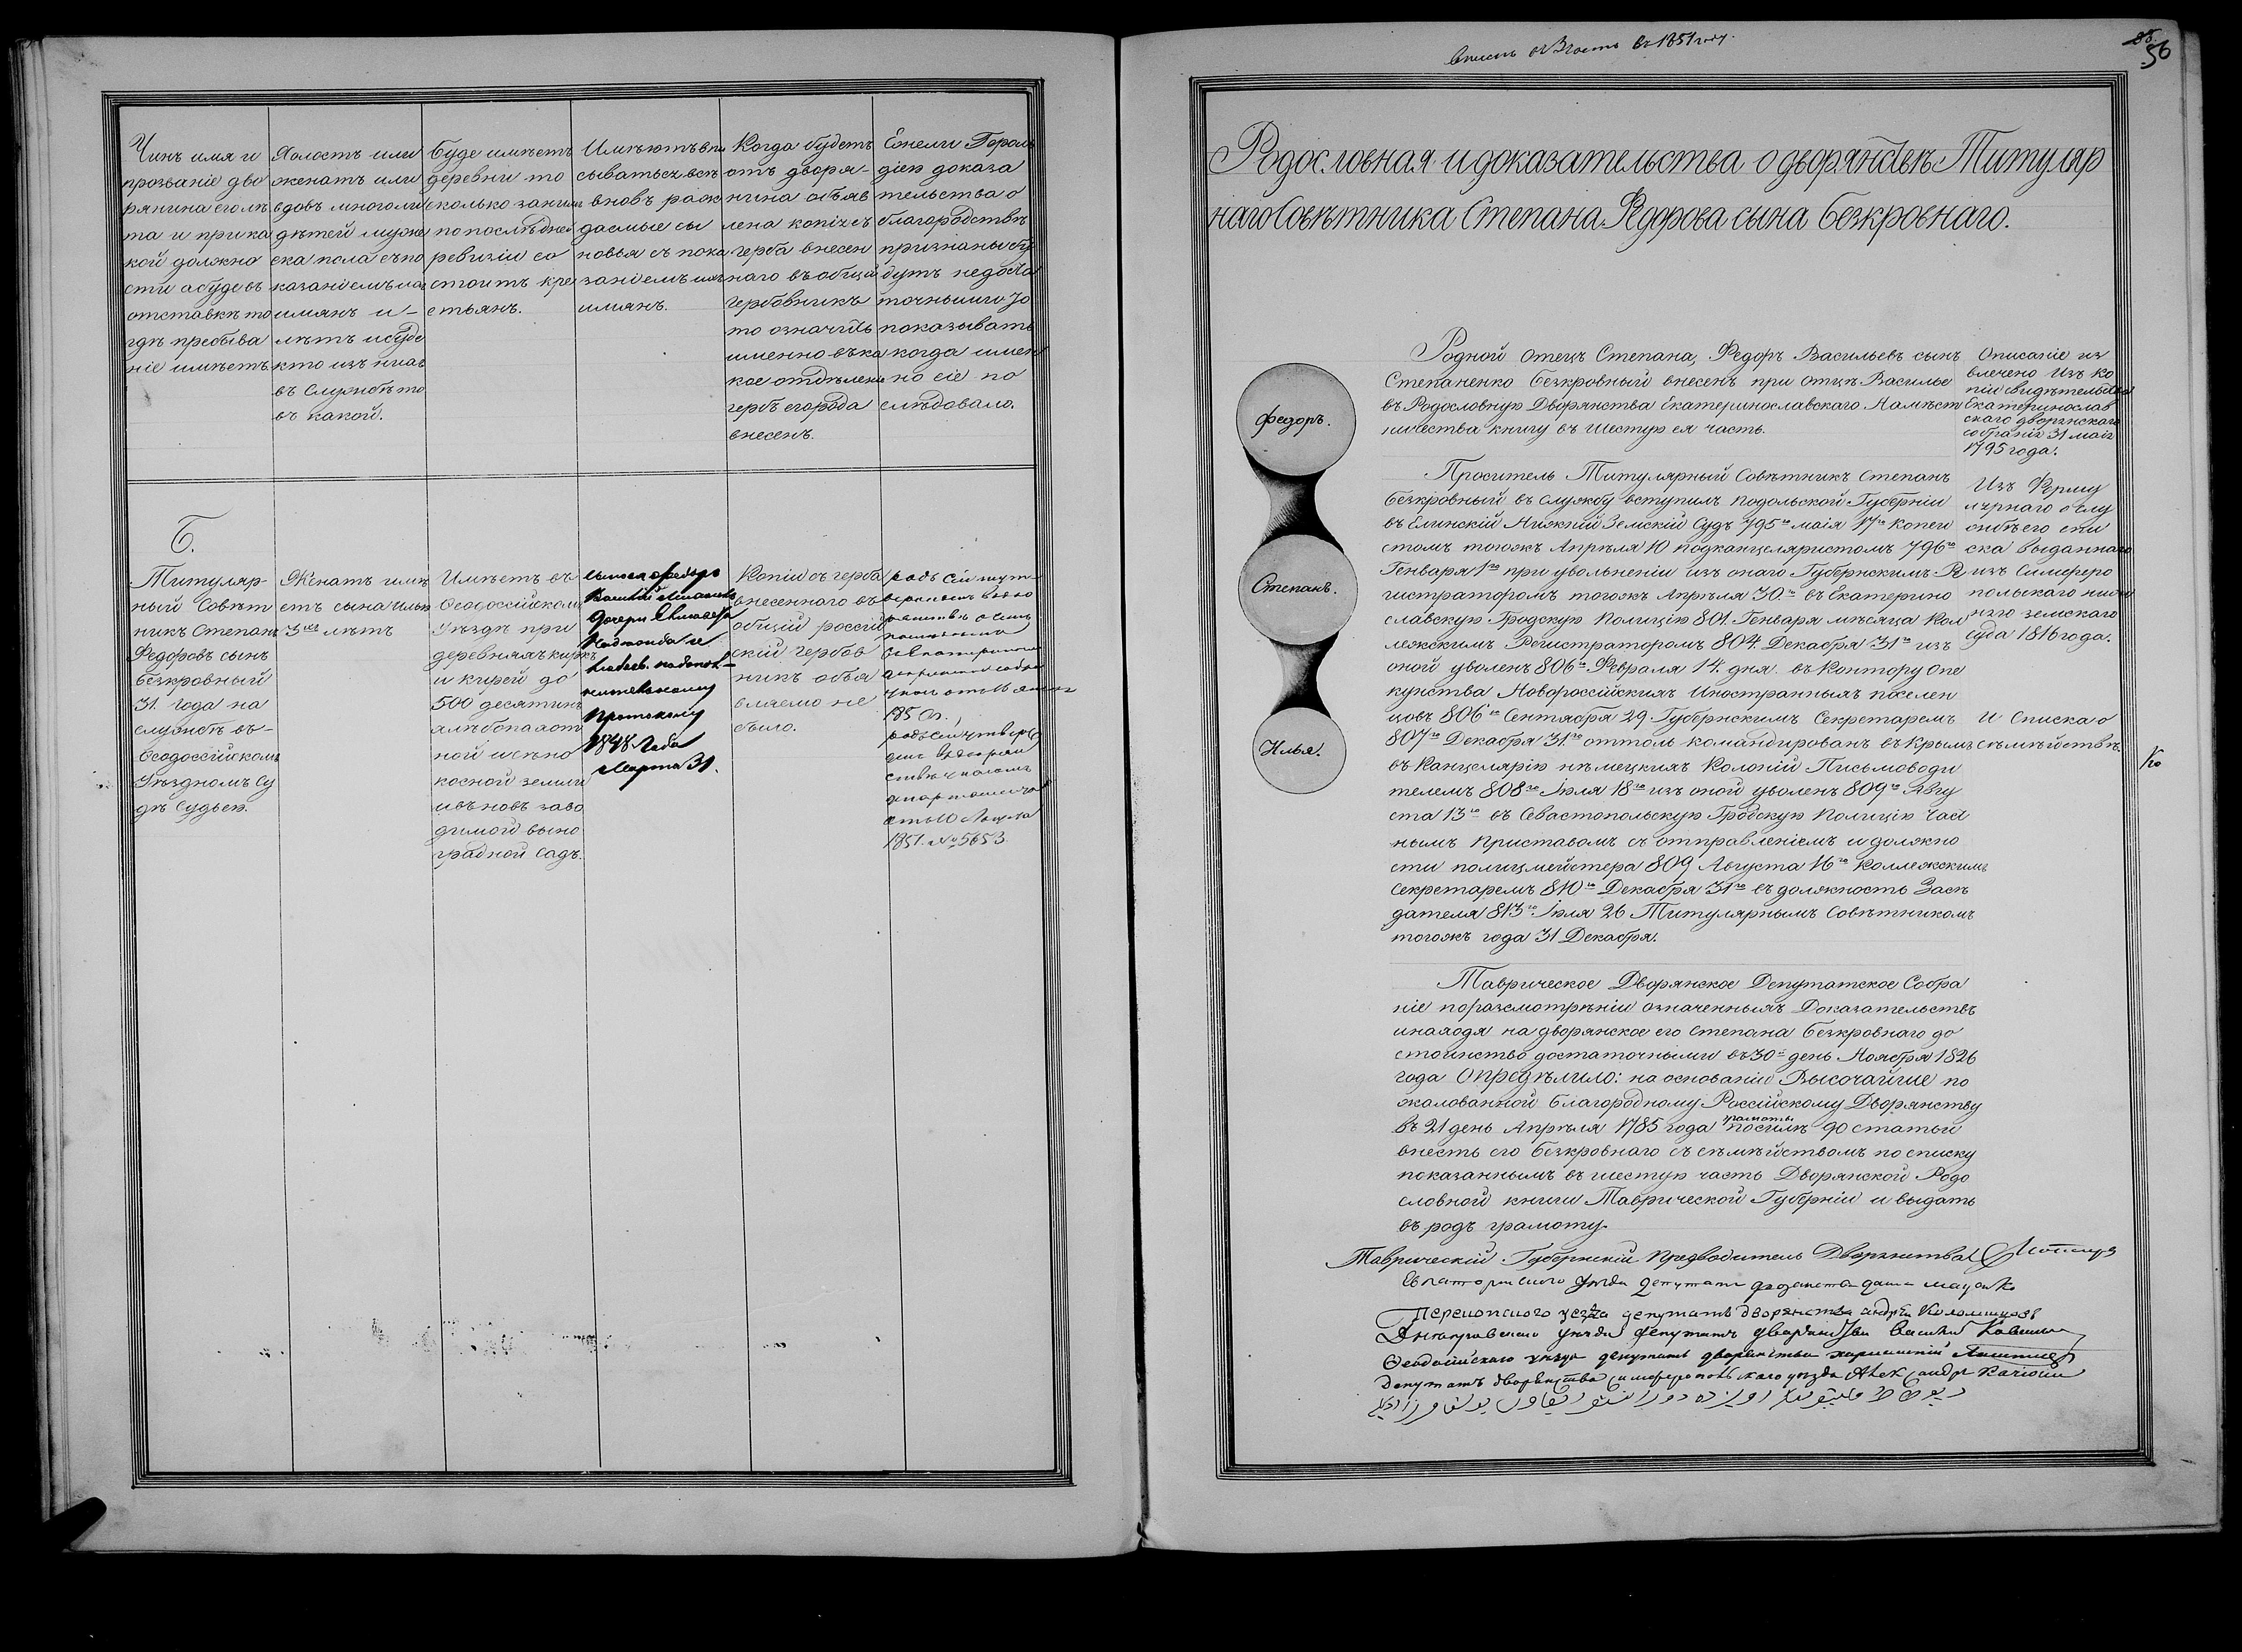 Чинъ имя и
прозваніе дво
рянина его лѣ
та и при ка
кой должно
сти а буде въ
отставкѣ то
гдѣ пребыва
ніе имѣетъ
Холостъ или
женатъ или
вдовъ много ли
дѣтей муже
ска пола съ по
казаніемъ ихъ
имянъ и -
лѣтъ и буде
кто изъ нихъ
въ Службѣ то
въ какой.
Буде имѣетъ
деревни то
сколько за ними
по послѣдней
ревизіи со
стоитъ кре
стьянъ.
Имѣютъ впи
сываться всѣ
вновь раж
даемые сы
новья съ пока
заніемъ ихъ
имянъ.
Когда будетъ
отъ дворя-
нина объяв
лена копія съ
герба внесен
наго въ общій
гербовникъ
то означить
именно въ ка
кое отдѣленіе
гербъ его рода
внесенъ.
Ежели Героль
діею доказа
тельства о
благородствѣ
признаны бу
дутъ недоста
точными то
показывать
когда имен
но сіе по
слѣдовало.
Б.
Титуляр-
ный Совѣт
никъ Степанъ
Федоровъ сынъ
Безкровный
31. года на
службѣ въ-
Ѳеодосійскомъ
Уѣздномъ Су
дѣ Судьею.
Женатъ имѣ
етъ сына Илью
3хъ лѣтъ
Имѣетъ въ
Ѳеодосійскомъ
Уѣздѣ при
деревняхъ Киркъ
и Кирей до
500 десятинъ
хлѣбопахот
ной и сѣно
косной земли
и вновь заво
димой вино
градной садъ.
сыновья Федоръ
Василій
дочери Елисавета
Надежда и
Протоколу
1848 Года
Марта 31.
Копіи съ герба
внесеннаго въ
общій россій
скій Гербов
никъ объя
вляемо не
было.
родъ сей
1850г.
родъ сей утверж
1851. № 5653.
внесенъ въ 3 часть въ 1851 году.
56
Родословная и доказательства о дворянствѣ Титуляр
наго Совѣтника Степана Ѳедорова сына Безкровнаго.
Федоръ.
Степанъ.
Илья.
Родной отецъ Степана, Федоръ Васильевъ сынъ
Степаненко Безкровный внесенъ при отцѣ Василье
въ Родословную Дворянства Екатеринославскаго Намѣст
ничества книгу въ шестую ея часть.
Описаніе из
влечено изъ ко
піи свидѣтельства
Екатеринослав
скаго дворянскаго
собранія 31 маія
1795 года.
Проситель Титулярный Совѣтникъ Степанъ
Безкровный въ службу вступилъ Подольской Губерніи
въ Елинскій Нижній Земскій Судъ 795го маія 17го Копеи
стомъ тогожъ Апрѣля 10 подканцеляристомъ 796го
Генваря 1го при увольненіи изъ онаго Губернскимъ Ре
гистраторомъ тогожъ Апрѣля 30го въ Екатерино
славскую Градскую Полицію 801. Генваря мѣсяца Кол
лежскимъ Регистраторомъ 804. Декабря 31го изъ
оной уволенъ 806го Февраля 14. дня. въ Контору Опе
кунства Новороссійскихъ Иностранныхъ поселен
цовъ 806го Сентября 29 Губернскимъ Секретаремъ
807го Декабря 31го оттоль командированъ въ Крымъ
въ Канцелярію нѣмецкихъ Колоній Письмоводи
телемъ 808го Іюля 18го изъ оной уволенъ 809го Авгу
ста 13го въ Севастопольскую Градскую Полицію Част
нымъ Приставомъ съ отправленіемъ и должно
сти полицмейстера 809 Августа 16го Коллежскимъ
Секретаремъ 810го Декабря 31го въ должность Засѣ
дателя 813го Іюля 26 Титулярнымъ Совѣтникомъ
тогожъ года 31 Декабря.
Изъ Форму
лярнаго о слу
жбѣ его спи
ска выданнаго
изъ Симферо
польскаго ниж
няго земскаго
суда 1816 года.
И Списка о
сѣмѣйствѣ.
Таврическое Дворянское Депутатское Собра
ніе поразсмотрѣніи означенныхъ Доказательствъ
и находя на дворянское его Степана Безкровнаго до
стоинство достаточными въ 30й день Ноября 1826
года Опредѣлило: на основаніи Высочайше по
жалованной благородному Россійскому Дворянству
въ 21 день Апрѣля 1785 года грамоты посилѣ 90 статьи
внесть его Безкровнаго съ сѣмѣйствомъ по списку
показаннымъ въ шестую часть Дворянской Родо
словной книги Таврической Губерніи и выдать
въ родъ грамоту.
Таврическій Губернскій Предводитель Дворянства
Евпаторійскаго Уѣзда Депутатъ
Перекопскаго уезда депутатъ дворянства андрѣй
Днѣпровскаго уѣзда депутатъ дворянства Василій
Ѳеодосійскаго уѣзда депутатъ дворянства
Депутатъ дворянства Симферопольскаго уѣзда Александръ